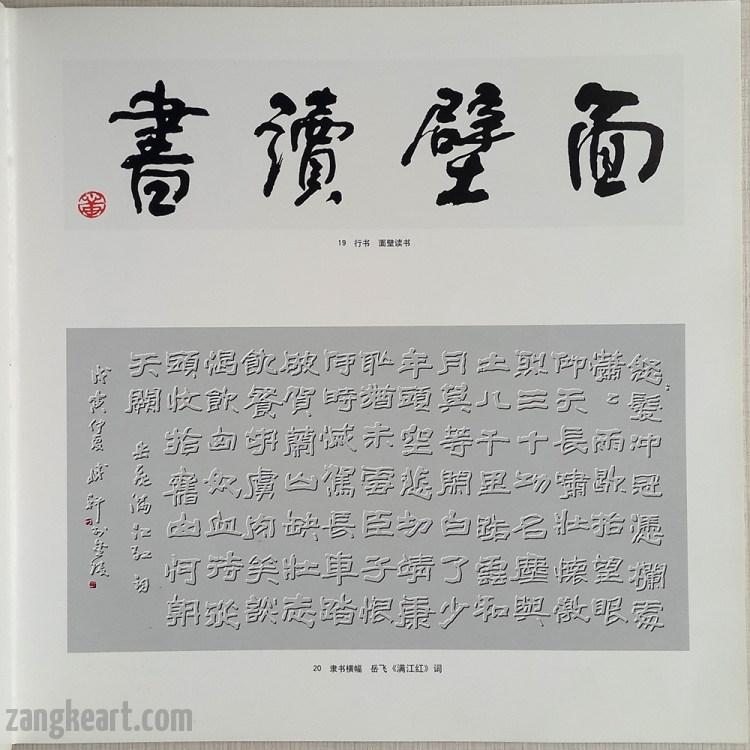 面壁讀書
19 行书 面壁读书
怒髮沖冠憑欄處
蕭〻雨歇抬望眼
仰天長嘯壯懷激
烈三十功名塵與
土八千里路雲和
月莫等閒白了少
年頭空悲切靖康
恥猶未雪臣子恨
何時滅駕長車踏
破賀蘭山缺壯志
飢餐胡虜肉笑談
渴飲匈奴血待從
頭收拾舊山河朝
天闕 岳飛滿江紅詞
戊寅仲夏
20 隶书横幅 岳飞《满江红》词
zangkeart.com